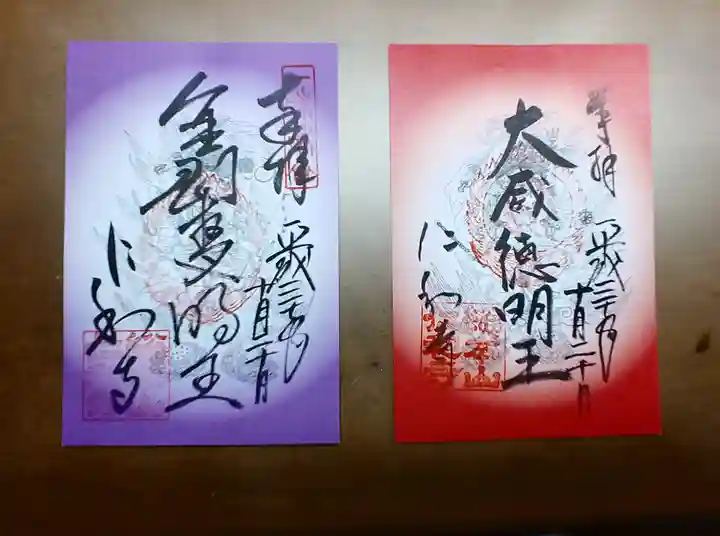 奉拝
平成三十年
十月二十日
金剛夜叉明王
仁和寺
奉拝
平成三十年
十月二十日
大威徳明王
仁和寺